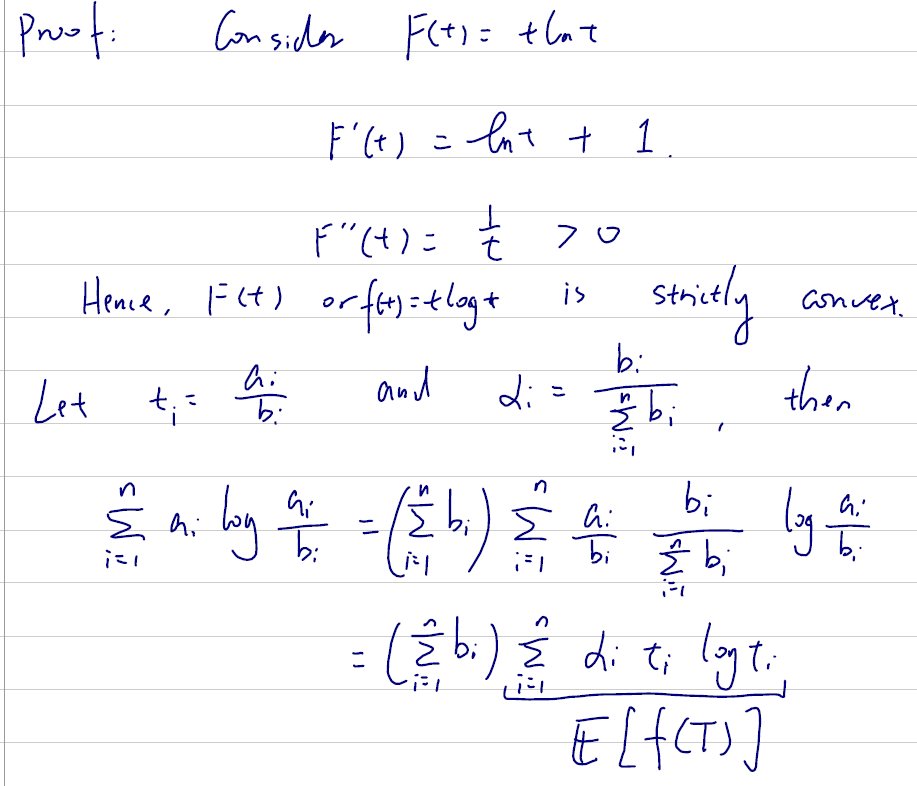 Proof: Consider F(t) = t ln t
F'(t) = ln t + 1.
F''(t) = \frac{1}{t} > 0
Hence, F(t) or f(t) = t log t is strictly convex.
Let t_i = \frac{a_i}{b_i} and α_i = \frac{b_i}{\sum_{i=1}^{n} b_i}, then
\sum_{i=1}^{n} a_i log \frac{a_i}{b_i} = (\sum_{i=1}^{n} b_i) \sum_{i=1}^{n} \frac{a_i}{b_i} \frac{b_i}{\sum_{i=1}^{n} b_i} log \frac{a_i}{b_i}
= (\sum_{i=1}^{n} b_i) \sum_{i=1}^{n} α_i t_i log t_i
𝔼[f(T)]